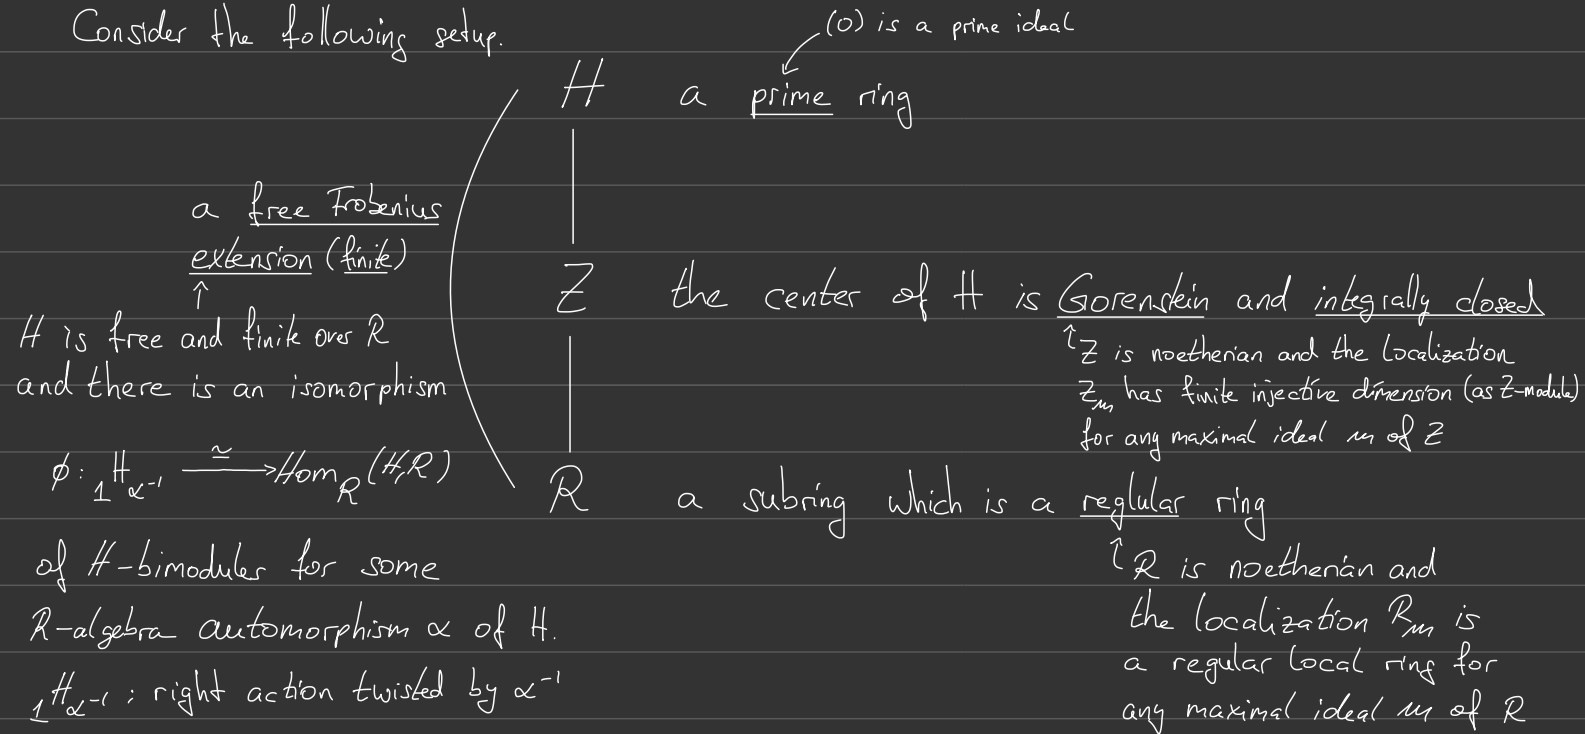 Consider the following setup.
(0) is a prime ideal
H a prime ring
a free Frobenius
extension (finite)
↑
H is free and finite over R
and there is an isomorphism
ϕ: ₁H_{α⁻¹} ≃→ Hom_R(H,R)
of H-bimodules for some
R-algebra automorphism α of H.
₁H_{α⁻¹} : right action twisted by α⁻¹
Z the center of H is Gorenstein and integrally closed
↑ Z is noetherian and the localization
Z_m has finite injective dimension (as Z-module)
for any maximal ideal m of Z
R a subring which is a reglular ring
↑ R is noetherian and
the localization R_m is
a regular local ring for
any maximal ideal m of R